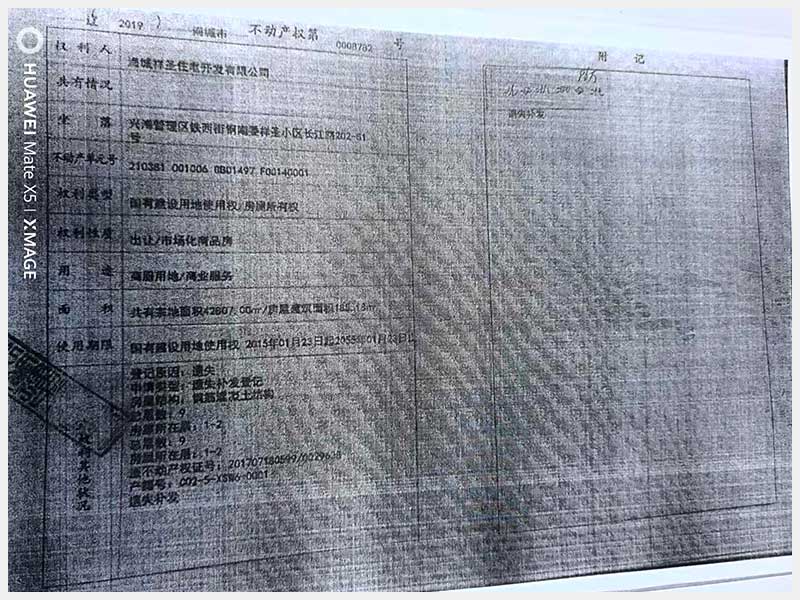 辽 ( 2019 ) 海城市 不动产权第 0008782 号
权利人 海城祥圣住宅开发有限公司
共有情况
坐落 兴海管理区铁西街钢南委祥圣小区长江路202-S1
号
不动产单元号 210381 001006 GB01497 F00140001
权利类型 国有建设用地使用权/房屋所有权
权利性质 出让/市场化商品房
用途 商服用地/商业服务
面积 共有宗地面积42807.00㎡/房屋建筑面积
使用期限 国有建设用地使用权 2015年01月23日起2055年01月23日止
权利其他状况
登记原因：遗失
申请类型：遗失补发登记
房屋结构：钢筋混凝土结构
总层数：9
房屋所在层：1-2
总层数：9
房屋所在层：1-2
原不动产权证号：201707180599/0029638
产籍号：002-5-XSW6-0001
遗失补发
附记
遗失补发
HUAWEI Mate X5 | XMAGE